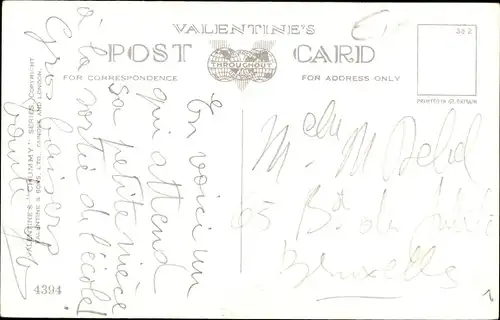 VALENTINE'S
POST CARD
THROUGHOUT
FOR CORRESPONDENCE
FOR ADDRESS ONLY
352
PRINTED IN GT. BRITAIN
VALENTINE'S "CRUMMY" SERIES COPYRIGHT
VALENTINE & SONS, LTD., DUNDEE AND LONDON.
4394
En voici un
qui attend
sa petite nièce
à la sortie de l'école!
Gros baisers
65 Bd du
Bruxelles